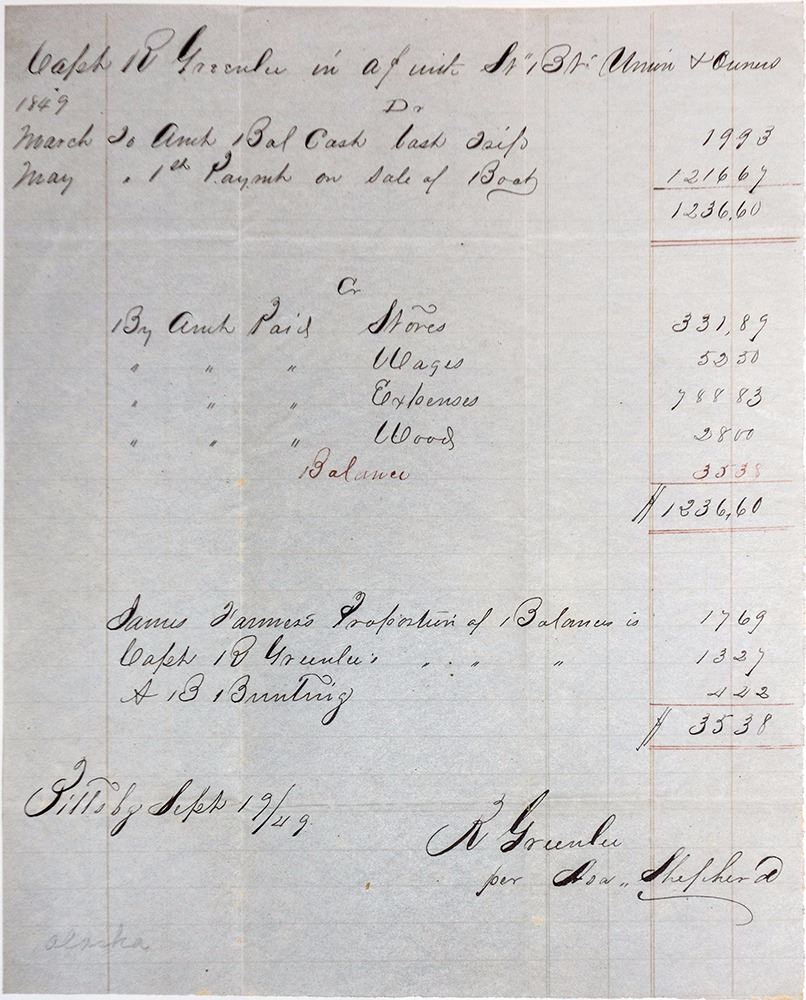 Capt R Greenlee in a/c with St" Bt" Union & Owners
1849 Dr
March To Amt Bal Cash last Trip 19 93
May " 1st Paymt on Sale of Boat 1216 67
1236,60
Cr
By Amt Paid Stores 331,89
" " " Wages 52 50
" " " Expenses 788 83
" " " Wood 28 00
Balance 35 38
$ 1236,60
James Farmers Proportion of Balance is 17 69
Capt R Greenlee's " " " 13 27
A B Bunting 4 42
$ 35 38
Pittsbg Sept 19/49
R Greenlee
per Shepherd
alaska